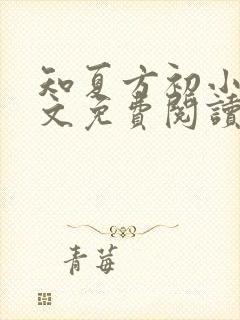 知夏方初小
文免費閱讀
青莓